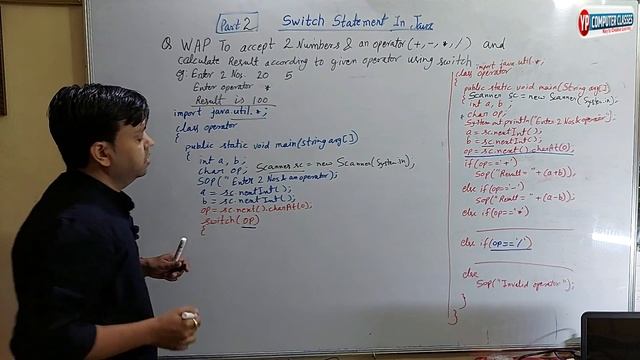 Part 2 Switch Statement In Java
Q WAP To accept 2 Numbers & an operator (+, -, *, /) and
calculate Result according to given operator using switch
eg: Enter 2 Nos. 20 5
Enter operator *
Result is 100
import java.util.*;
class operator
{ public static void main(String arg[])
{ int a, b;
char op; Scanner sc = new Scanner(System.in);
SOP("Enter 2 Nos & an operator);
a = sc.nextInt();
b = sc.nextInt();
op = sc.next().charAt(0);
switch(op)
{
import java.util.*;
class operator
{ public static void main(String arg[])
{ Scanner sc = new Scanner(System.in);
int a, b ;
char op;
System.out.println("Enter 2 Nos & operator");
a = sc.nextInt();
b = sc.nextInt();
op = sc.next().charAt(0);
if(op=='+')
SOP("Result = "+(a+b));
else if(op=='-')
SOP("Result = "+(a-b));
else if(op=='*')
else if(op=='/')
else
SOP("Invalid operator");
}
}
VP COMPUTER CLASSES